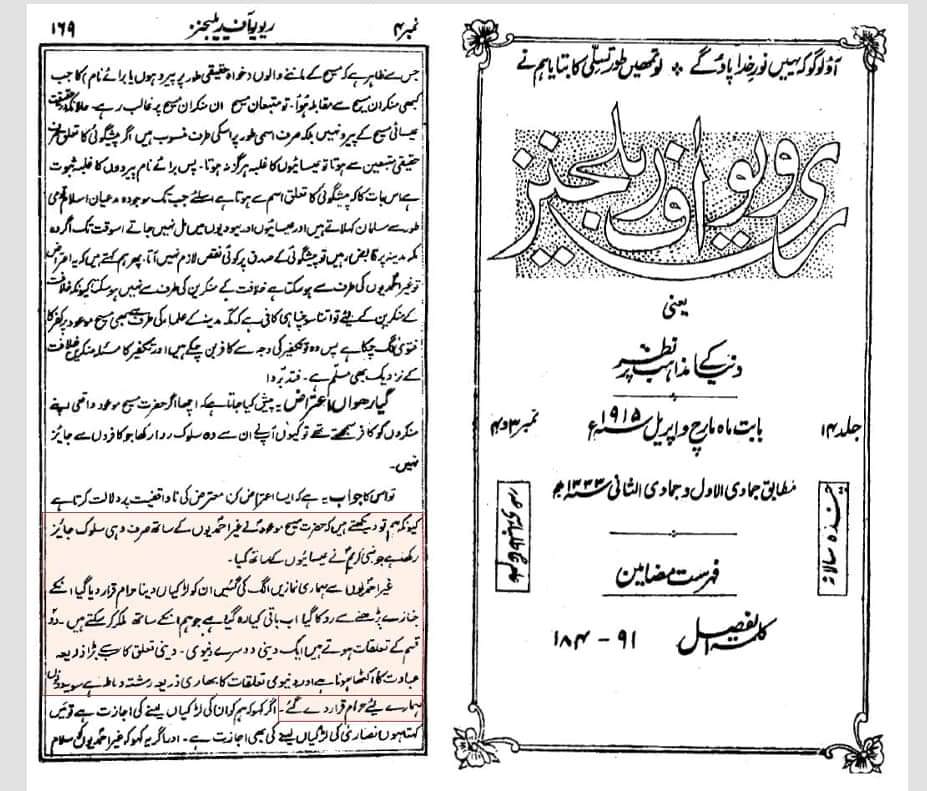 آؤ لوگو کہ یہیں نورِ خدا پاؤ گے ٭ لو تمھیں طور تسلی کا بتایا ہم نے
ریویو آف ریلیجنز
یعنی
دنیا کے مذاہب پر نظر
جلد ۱۴
بابت ماہ مارچ و اپریل ۱۹۱۵ء
نمبر ۳ و ۴
مطابق جمادی الاول و جمادی الثانی ۱۳۳۳ھ
چندہ سالانہ
فہرست مضامین
کلمۃ الفصل ۹۱ - ۱۸۴
نمبر ۴
ریویو آف ریلیجنز
۱۶۹
جس سے ظاہر ہے کہ مسیح کے ماننے والوں خواہ حقیقی طور پر پیرو ہوں یا برائے نام کا جب
کبھی منکران مسیح سے مقابلہ ہوا۔ تو متبعان مسیح ان منکران مسیح پر غالب رہے۔ حالانکہ
عیسائی مسیح کے پیرو نہیں بلکہ صرف اسمی طور پر اسکی طرف منسوب ہیں اگر پیشگوئی کا تعلق صرف
حقیقی متبعین سے ہوتا تو عیسائیوں کا غلبہ ہرگز نہ ہوتا۔ پس برائے نام پیروؤں کا غلبہ ثبوت
ہے اس بات کا کہ پیشگوئی کا تعلق اسم سے ہوتا ہے اسلئے جب تک موجودہ مدعیان اسلام قومی
طور سے مسلمان کہلاتے ہیں اور عیسائیوں اور یہودیوں میں مل نہیں جاتے اسوقت تک اگر وہ
مکہ مدینہ پر قابض رہیں تو پیشگوئی کے صدق پر کوئی نقص لازم نہیں آتا۔ پھر ہم کہتے ہیں کہ یہ اعتراض
تو غیر احمدیوں کی طرف سے ہو سکتا ہے خلافت کے منکرین کی طرف سے نہیں ہو سکتا کیونکہ خلافت
کے منکرین کے لئے تو اتنا سوچنا ہی کافی ہے کہ مکہ مدینہ کے علماء کی طرف سے بھی مسیح موعود پر کفر کا
فتویٰ لگ چکا ہے پس وہ تو تکفیر کی وجہ سے کافر بن چکے ہیں اور تکفیر کا مسئلہ منکرین خلافت
کے نزدیک بھی مسلم ہے۔ فتدبروا
گیارھواں اعتراض یہ پیش کیا جاتا ہے کہ اچھا اگر حضرت مسیح موعود واقعی اپنے
منکروں کو کافر سمجھتے تھے تو کیوں آپ نے ان سے وہ سلوک روا رکھا جو کافروں سے جائز
نہیں۔
تو اس کا جواب یہ ہے کہ ایسا اعتراض کرنا معترض کی ناواقفیت پر دلالت کرتا ہے
کیونکہ ہم تو دیکھتے ہیں کہ حضرت مسیح موعود نے غیر احمدیوں کے ساتھ صرف وہی سلوک جائز
رکھا ہے جو نبی کریم نے عیسائیوں کے ساتھ کیا۔
غیر احمدیوں سے ہماری نمازیں الگ کی گئیں ان کو لڑکیاں دینا حرام قرار دیا گیا انکے
جنازے پڑھنے سے روکا گیا اب باقی کیا رہ گیا ہے جو ہم انکے ساتھ ملکر کر سکتے ہیں۔ دو
قسم کے تعلقات ہوتے ہیں ایک دینی دوسرے دنیوی۔ دینی تعلق کا سب سے بڑا ذریعہ
عبادت کا اکٹھا ہونا ہے اور دنیوی تعلقات کا بھاری ذریعہ رشتہ و ناطہ ہے سو یہ دونوں
ہمارے لئے حرام قرار دے گئے۔ اگر کہو کہ ہم کو ان کی لڑکیاں لینے کی اجازت ہے تو میں
کہتا ہوں نصاریٰ کی لڑکیاں لینے کی بھی اجازت ہے۔ اور اگر یہ کہو کہ غیر احمدیوں کو سلام